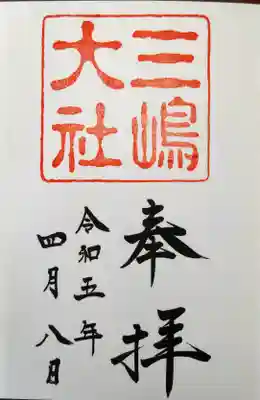 三嶋
大社
奉拝
令和五年
四月八日